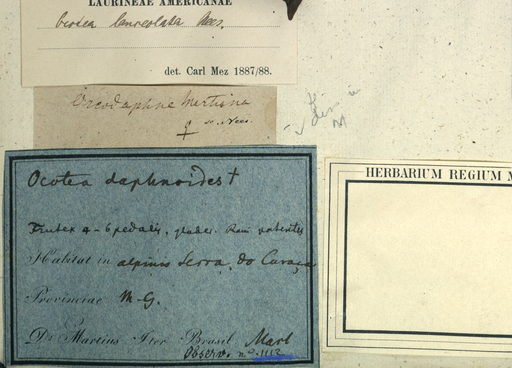 LAURINEAE AMERICANAE
Ocotea lanceolata Nees.
det. Carl Mez 1887/88.
Oreodaphne Martiana
Nees.
Ocotea daphnoides †
Frutex 4-6 pedalis, glaber. Rami patentes
Habitat in alpinis Serra do Caraça
Provinciae M.G.
Dr Martius Iter Brasil Mart
Observ. nº 1112
HERBARIUM REGIUM M